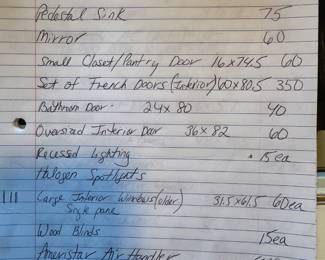 Pedestal Sink 75
Mirror 60
Small Closet/Pantry Door 16x74.5 60
Set of French Doors (Interior) 60x80.5 350
Bathroom Door 24x80 40
Oversized Interior Door 36x82 60
Recessed Lighting 15ea
Halogen Spotlights
Large Interior Windows (older) 31.5x61.5 60ea
Single pane
Wood Blinds 15ea
Ameristar Air Handler